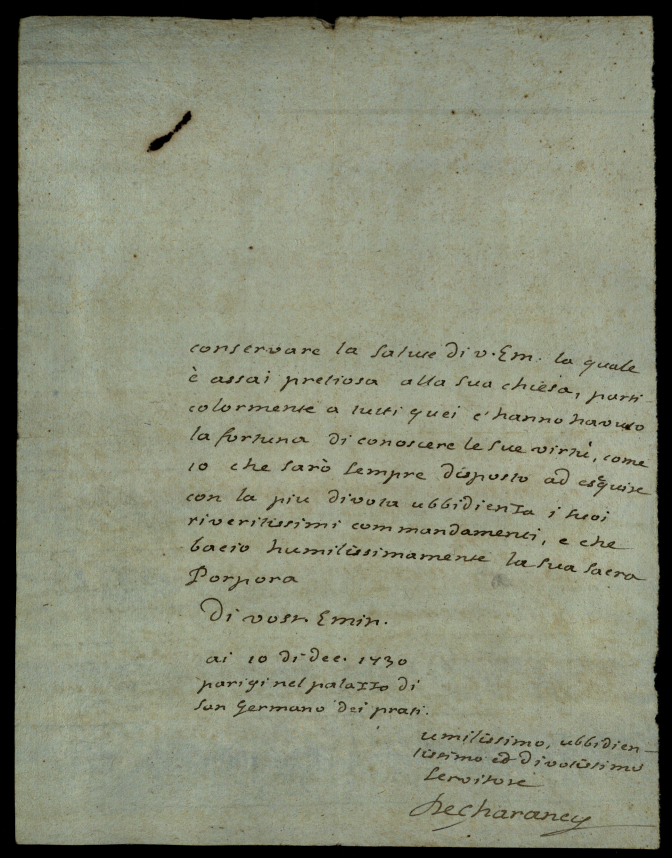 conservare la salute di v. Em. la quale
è assai pretiosa alla sua chiesa, parti-
colormente a tutti quei c'hanno havuto
la fortuna di conoscere le sue virtù, come
io che sarò sempre disposto ad esquire
con la piu divota ubbidienza i suoi
riveritissimi commandamenti, e che
bacio humilissimamente la sua sacra
Porpora
Di vostr. Emin.
ai 10 di dec. 1730
parigi nel palazzo di
san Germano dei prati.
umilissimo, ubbidien-
tissimo ed divotissimo
servitore
DeCharancy